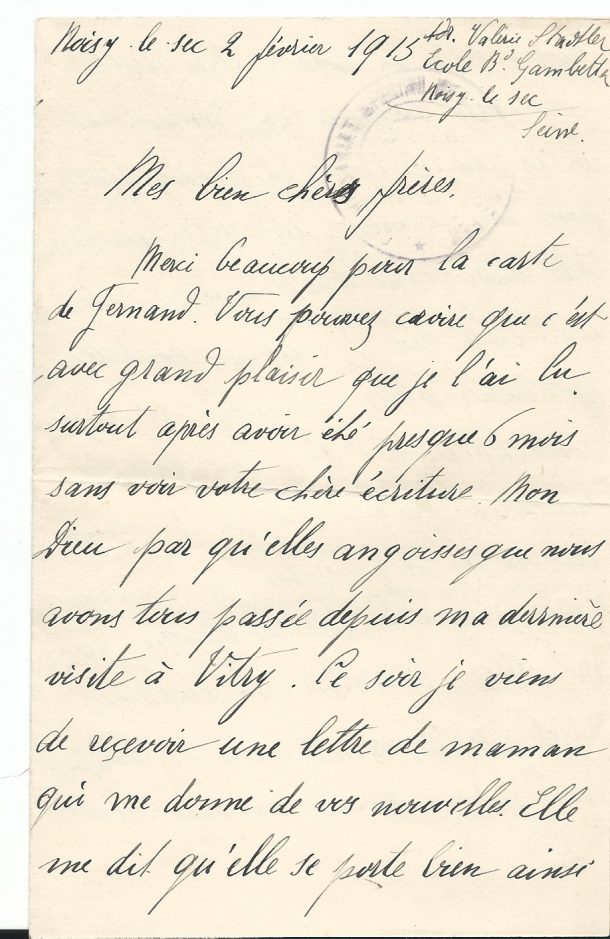 Noisy le sec 2 février 1915
Adr. Valérie Stadtler
Ecole Bd Gambetta
Noisy le sec
Seine.
Mes bien chères frères.
Merci beaucoup pour la carte
de Fernand. Vous pouvez croire que c'est
avec grand plaisir que je l'ai lu
surtout après avoir été presque 6 mois
sans voir votre chère écriture. Mon
Dieu par qu'elles angoisses que nous
avons tous passée depuis ma dernnière
visite à Vitry. Ce soir je viens
de reçevoir une lettre de maman
qui me donne de vos nouvelles. Elle
me dit qu'elle se porte bien ainsi